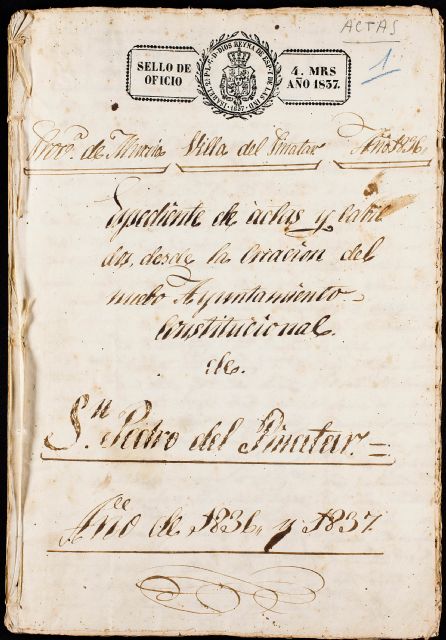 ACTAS
1
SELLO DE
OFICIO
4. MRS
AÑO 1837.
Prov.ª de Murcia Villa del Pinatar Año 1836
Espediente de actas y cabil
dos, desde la creacion del
nuebo Ayuntamiento
Constitucional.
de.
S.n Pedro del Pinatar.=
Año de 1836 y 1837